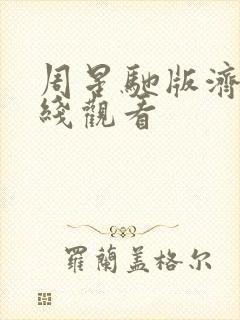 周星馳版濟
綫觀看
羅蘭盖格尔